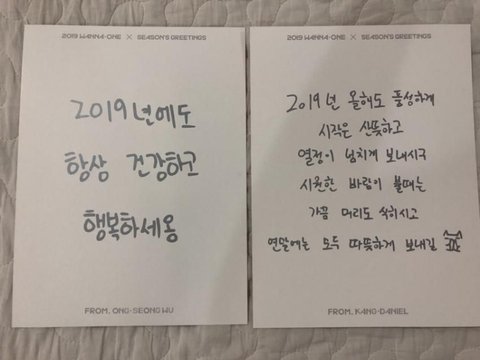 2019 WANNA·ONE × SEASON'S GREETINGS
2019년에도
항상 건강하고
행복하세옹
FROM. ONG·SEONG WU
2019 WANNA·ONE × SEASON'S GREETINGS
2019년 올해도 풍성하게
시작은 산뜻하고
열정이 넘치게 보내시구
시원한 바람이 불때는
가끔 머리도 식히시고
연말에는 모두 따뜻하게 보내길
FROM. KANG·DANIEL